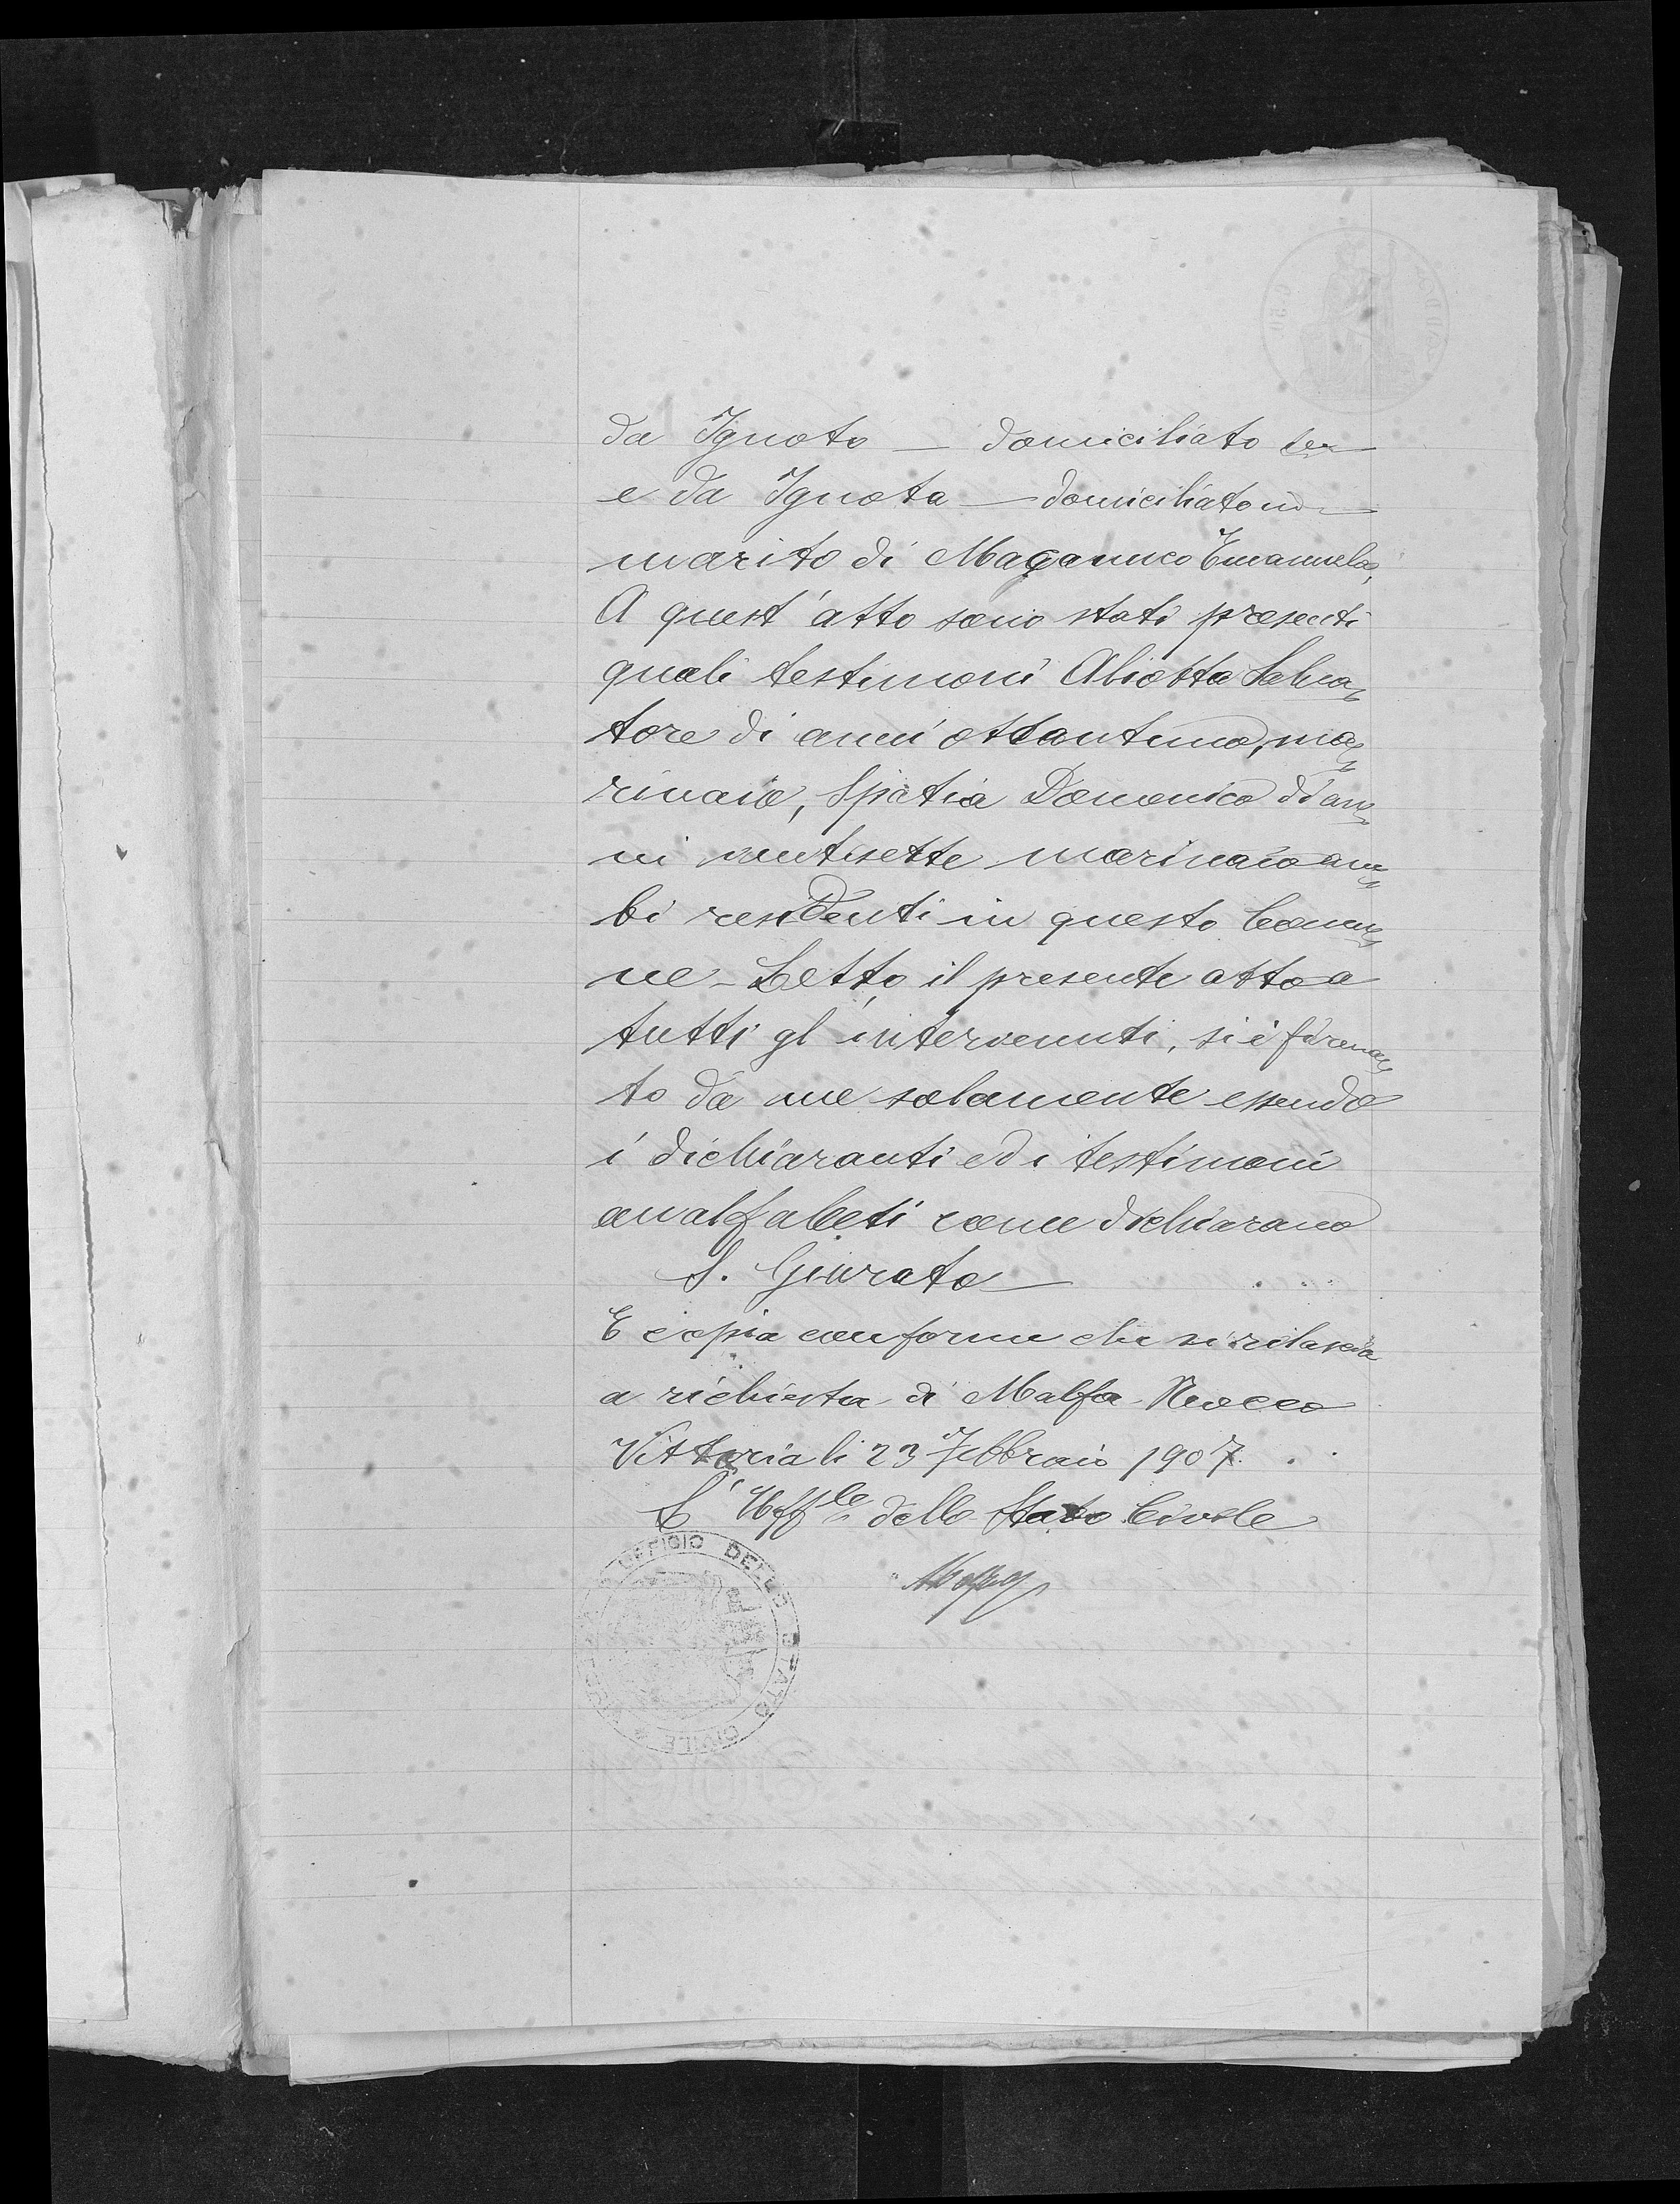 da Ignoto — domiciliato in
e da Ignota — domiciliato in
marito di Maganuco Emanuela,
A quest'atto sono stati presenti
quali testimoni Aliotta Salva
tore di anni ottantuno, ma
rinaio, Spatia Domenico di an
ni ventisette marinaio am
bi residenti in questo Comu
ne - Letto il presente atto a
tutti gl'intervenuti, si è firma
to da me solamente essendo
i dichiaranti ed i testimoni
analfabeti come dichiarano
S. Giurato
E copia conforme che si rilascia
a richiesta di Malfa Rocco
Vittoria li 23 Febbraio 1907.
L'Uffle dello Stato Civile
UFFICIO DELLO STATO CIVILE